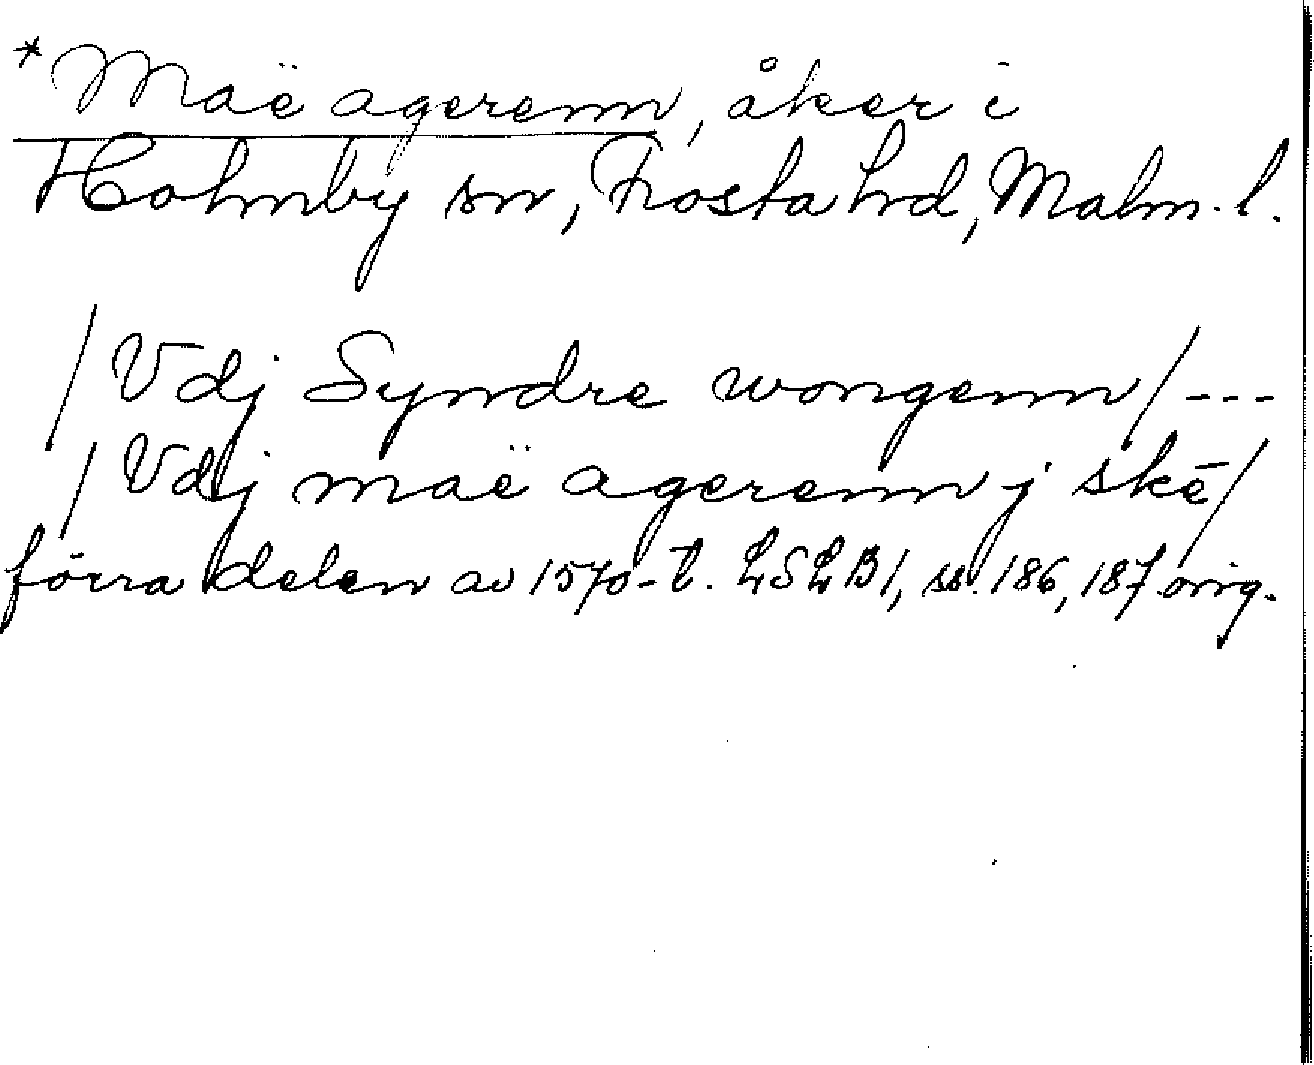 *Maë agerenn, åker i
Holmby sn, Frosta hd, Malm. l.
/Vdj Syndre wongenn/---
/Vdj maë agerenn j skē/
förra delen av 1570-t. LSLB1, ss. 186, 187 orig.